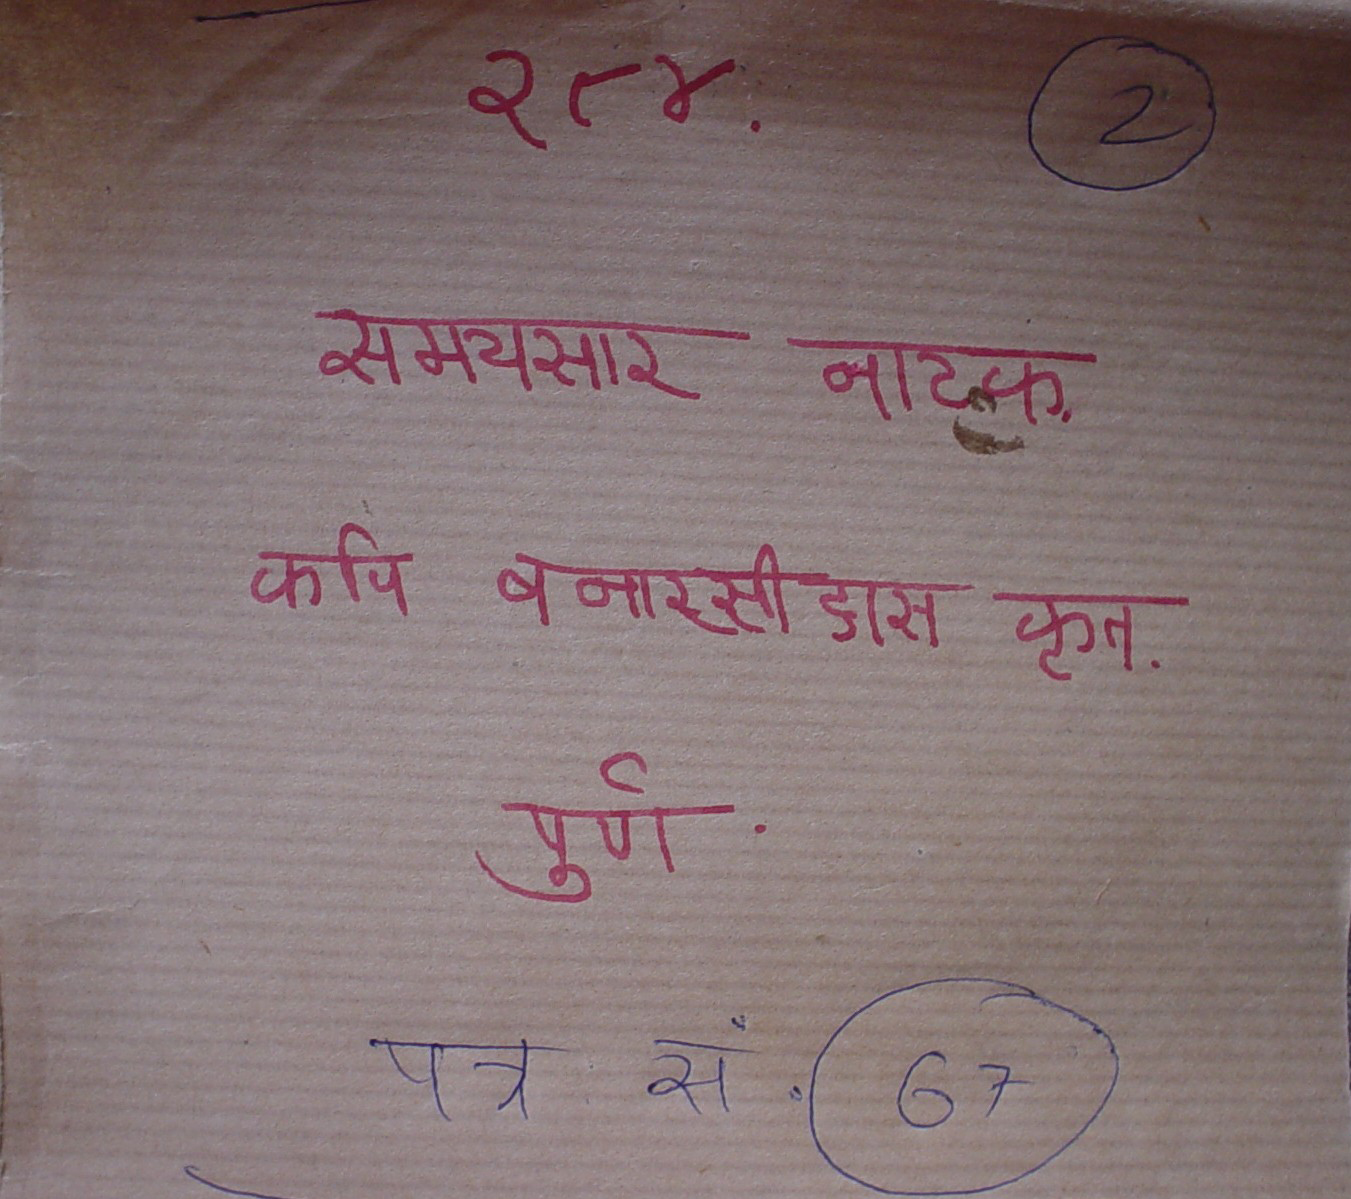 २८४. 2
समयसार नाटक.
कवि बनारसीदास कृत.
पुर्ण.
पत्र सं. 67